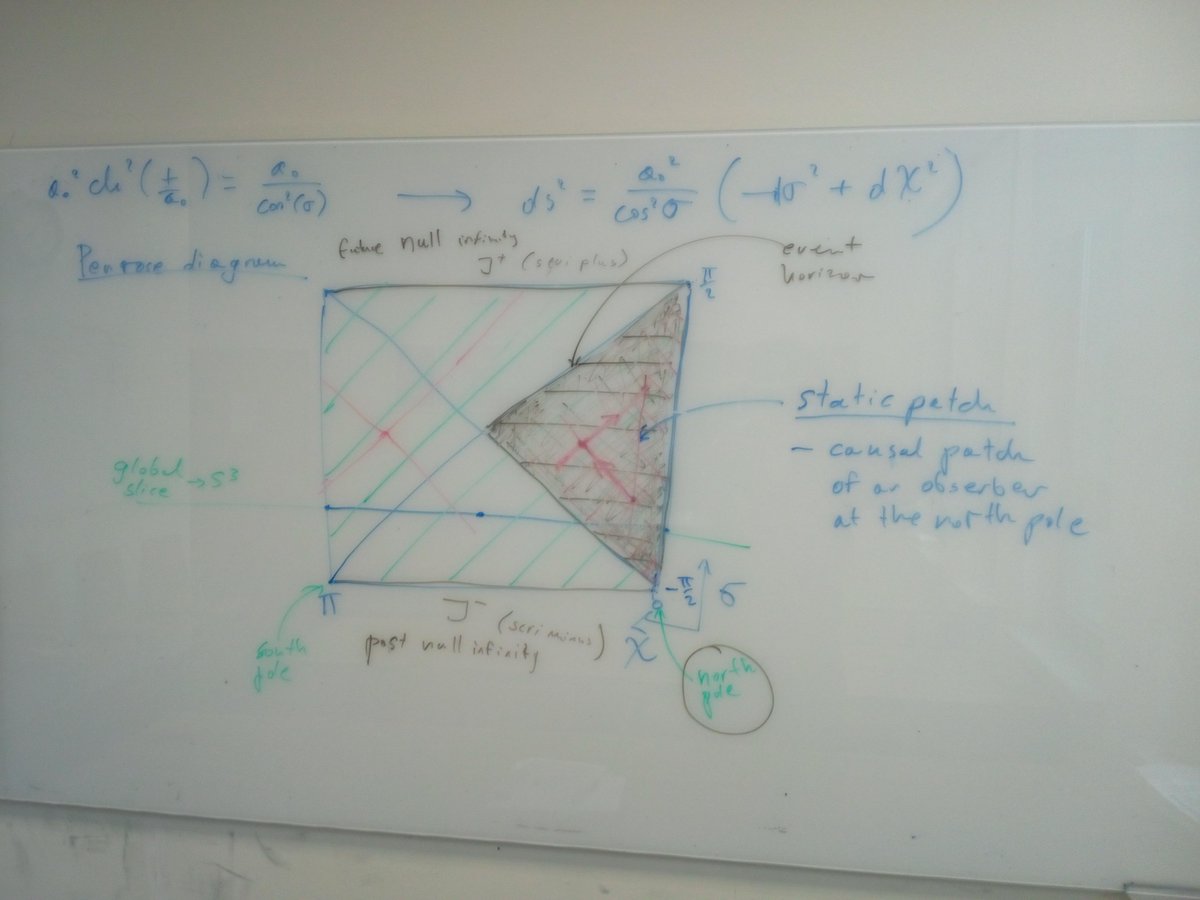 a₀² ch²(t/a₀) = a₀/cos²(σ) → ds² = a₀²/cos²σ (−dσ² + dχ²)
Penrose diagram
future null infinity
J⁺ (scri plus)
event
horizon
π/2
static patch
- causal patch
of an observer
at the north pole
global
slice → S³
π
-π/2
σ
0
χ
J⁻ (scri minus)
past null infinity
south
pole
north
pole